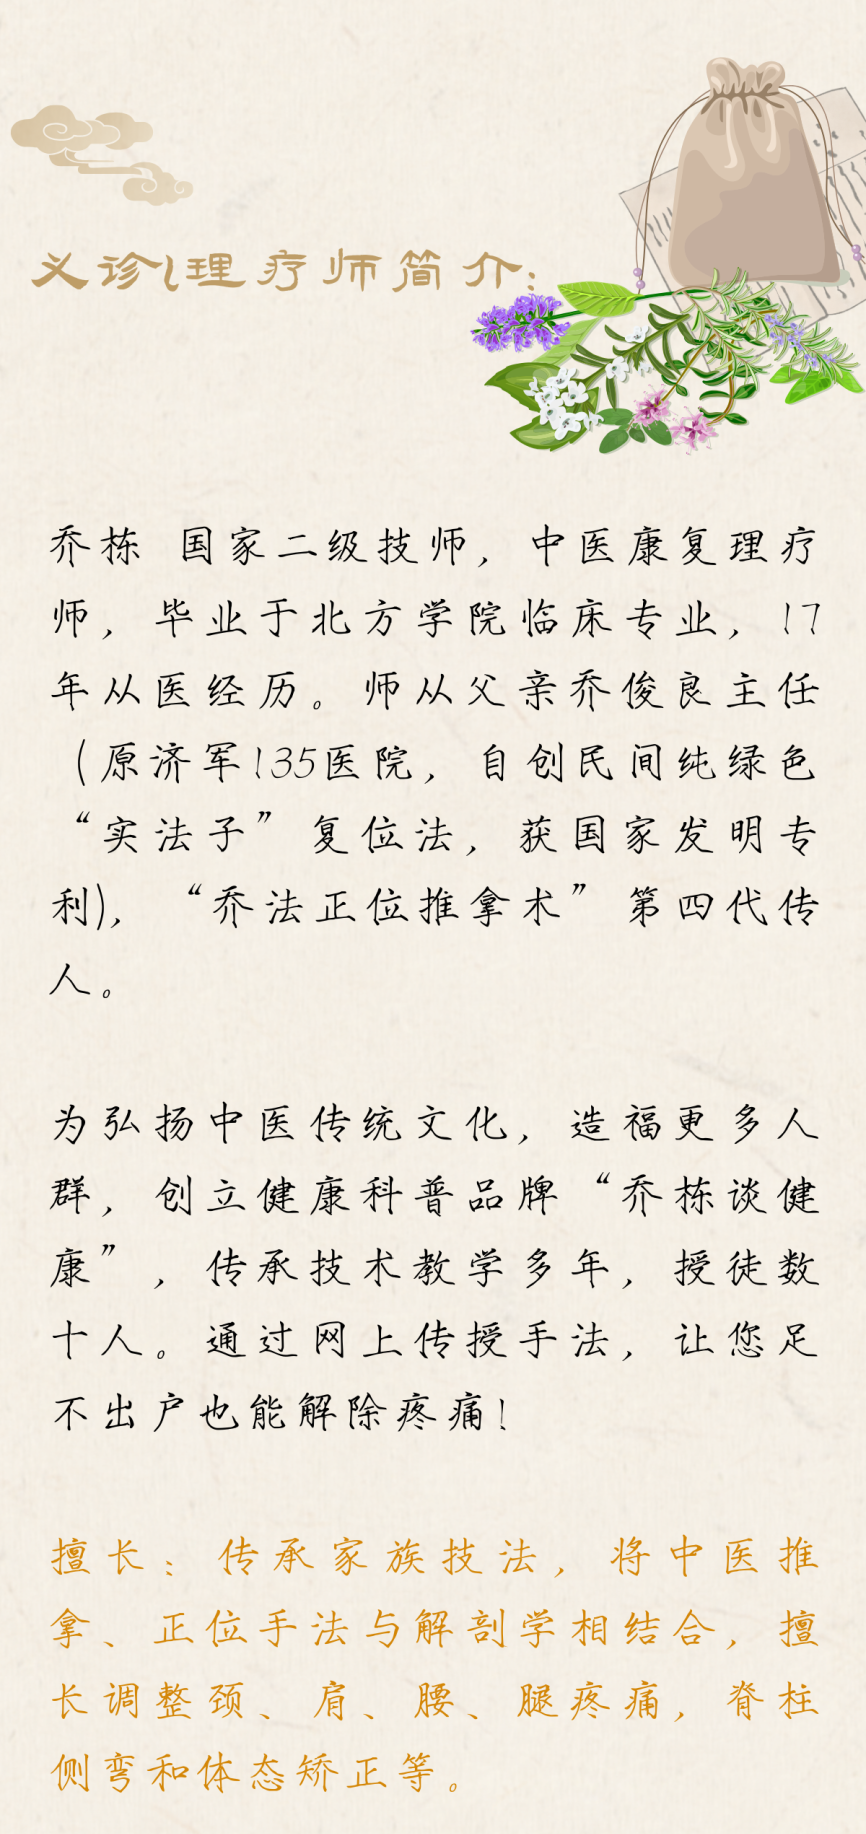 义诊理疗师简介:
乔栋 国家二级技师，中医康复理疗
师，毕业于北方学院临床专业，17
年从医经历。师从父亲乔俊良主任
（原济军135医院，自创民间纯绿色
“实法子”复位法，获国家发明专
利)，“乔法正位推拿术”第四代传
人。
为弘扬中医传统文化，造福更多人
群，创立健康科普品牌“乔栋谈健
康”，传承技术教学多年，授徒数
十人。通过网上传授手法，让您足
不出户也能解除疼痛！
擅长：传承家族技法，将中医推
拿、正位手法与解剖学相结合，擅
长调整颈、肩、腰、腿疼痛，脊柱
侧弯和体态矫正等。